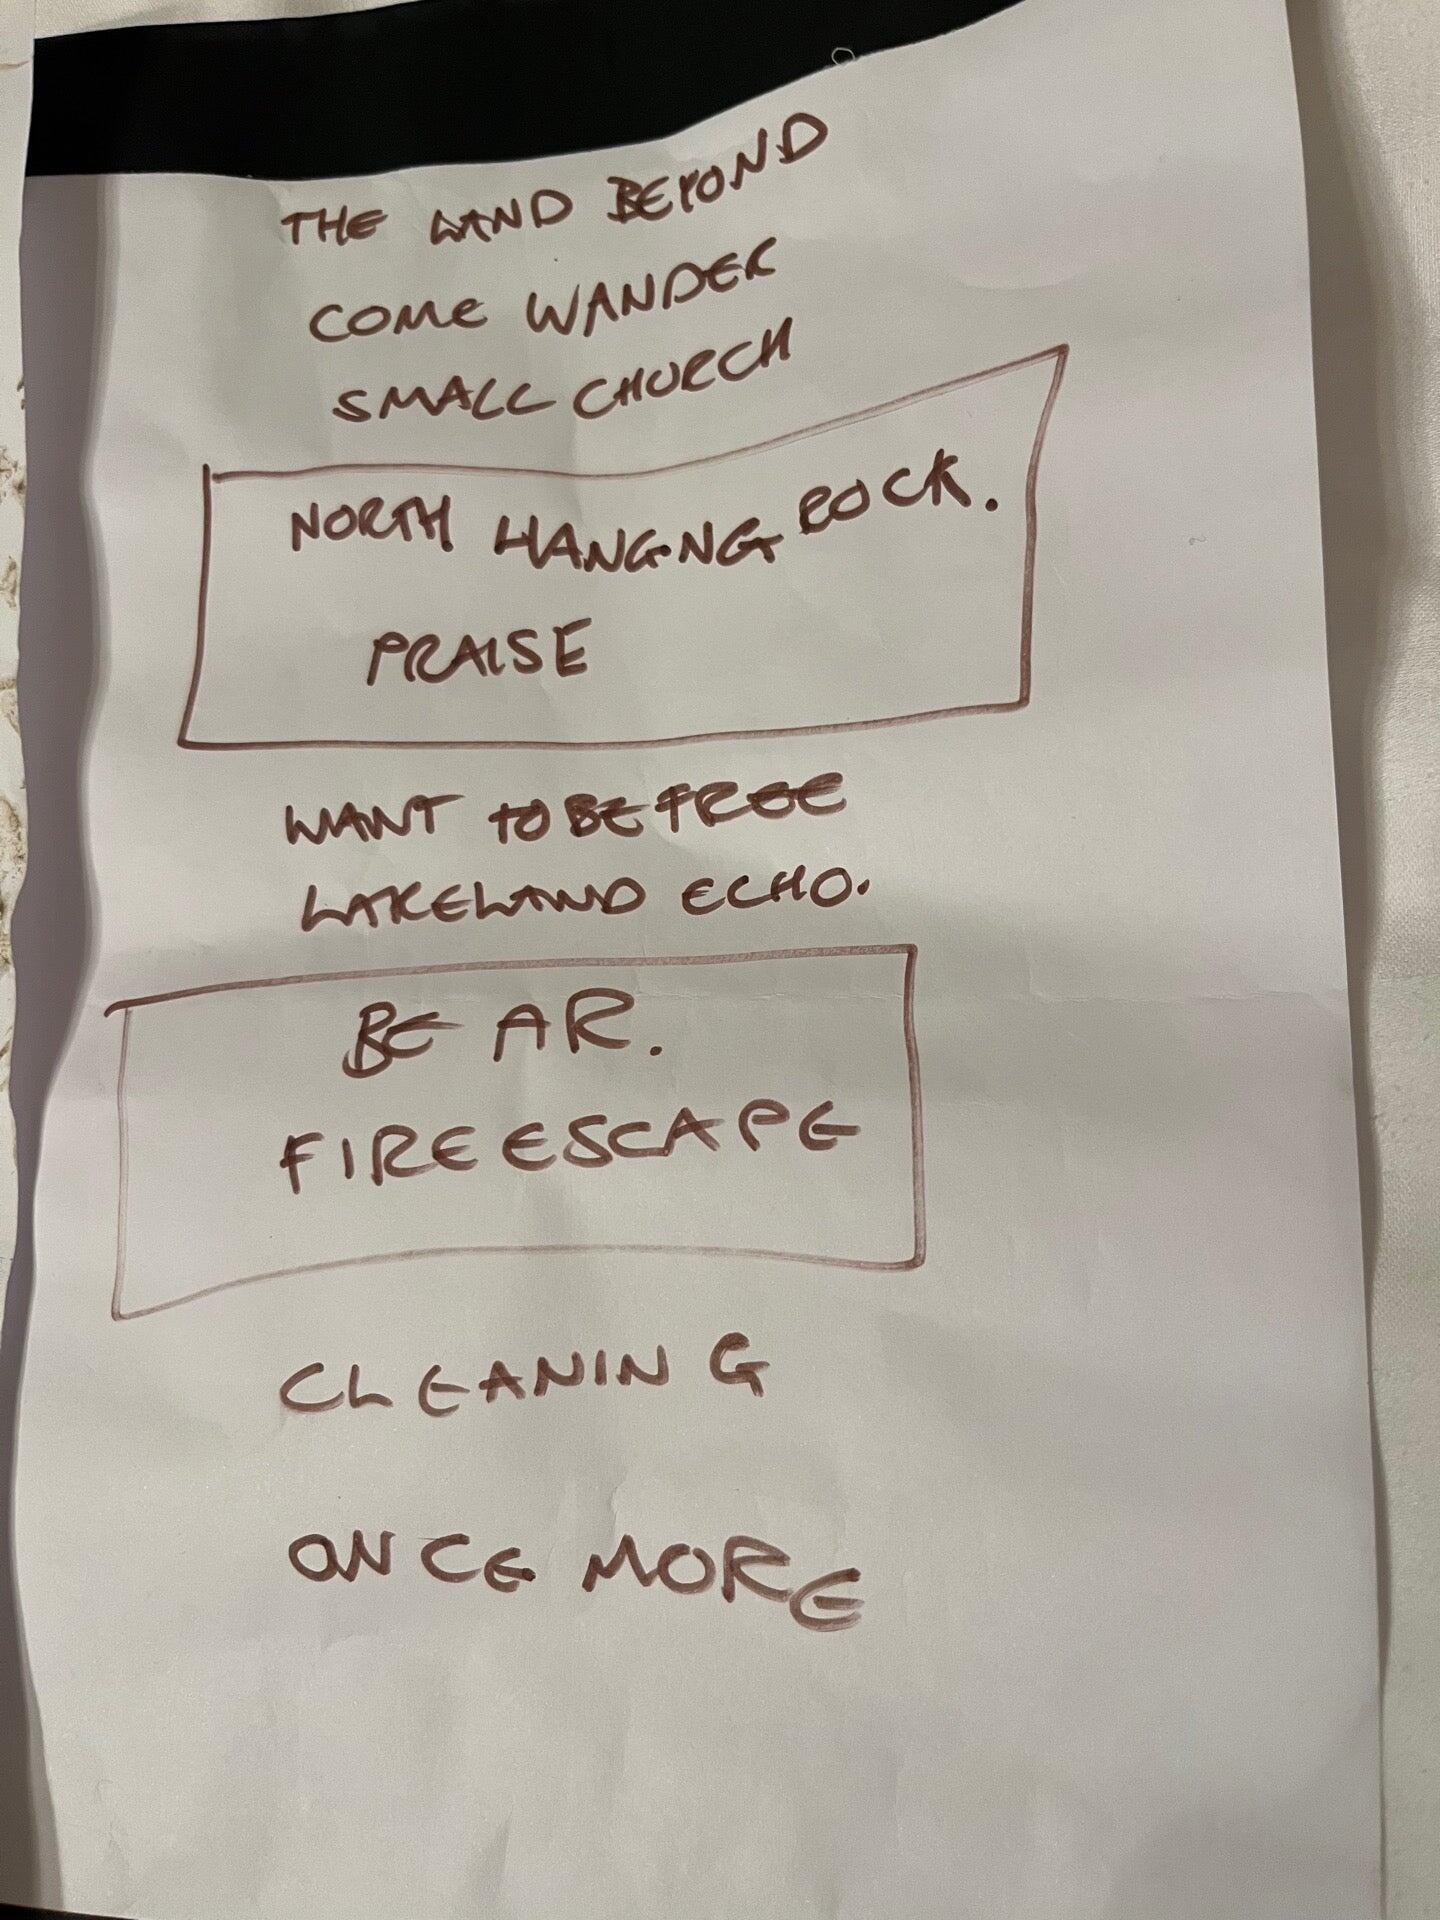 THE LAND BEYOND
COME WANDER
SMALL CHURCH
NORTH HANGING ROCK.
PRAISE
WANT TO BE FREE
LAKELAND ECHO.
BE AR.
FIRE ESCAPE
CLEANING
ONCE MORE